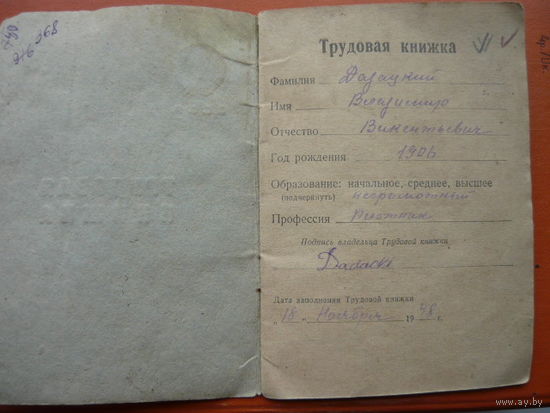 740
916368
Трудовая книжка
Фамилия
Имя Владимир
Отчество Викентьевич
Год рождения 1906
Образование: начальное, среднее, высшее
(подчеркнуть) неграмотный
Профессия Плотник
Подпись владельца Трудовой книжки
Дата заполнения Трудовой книжки
„18" Ноября 1948 г.
www.ay.by